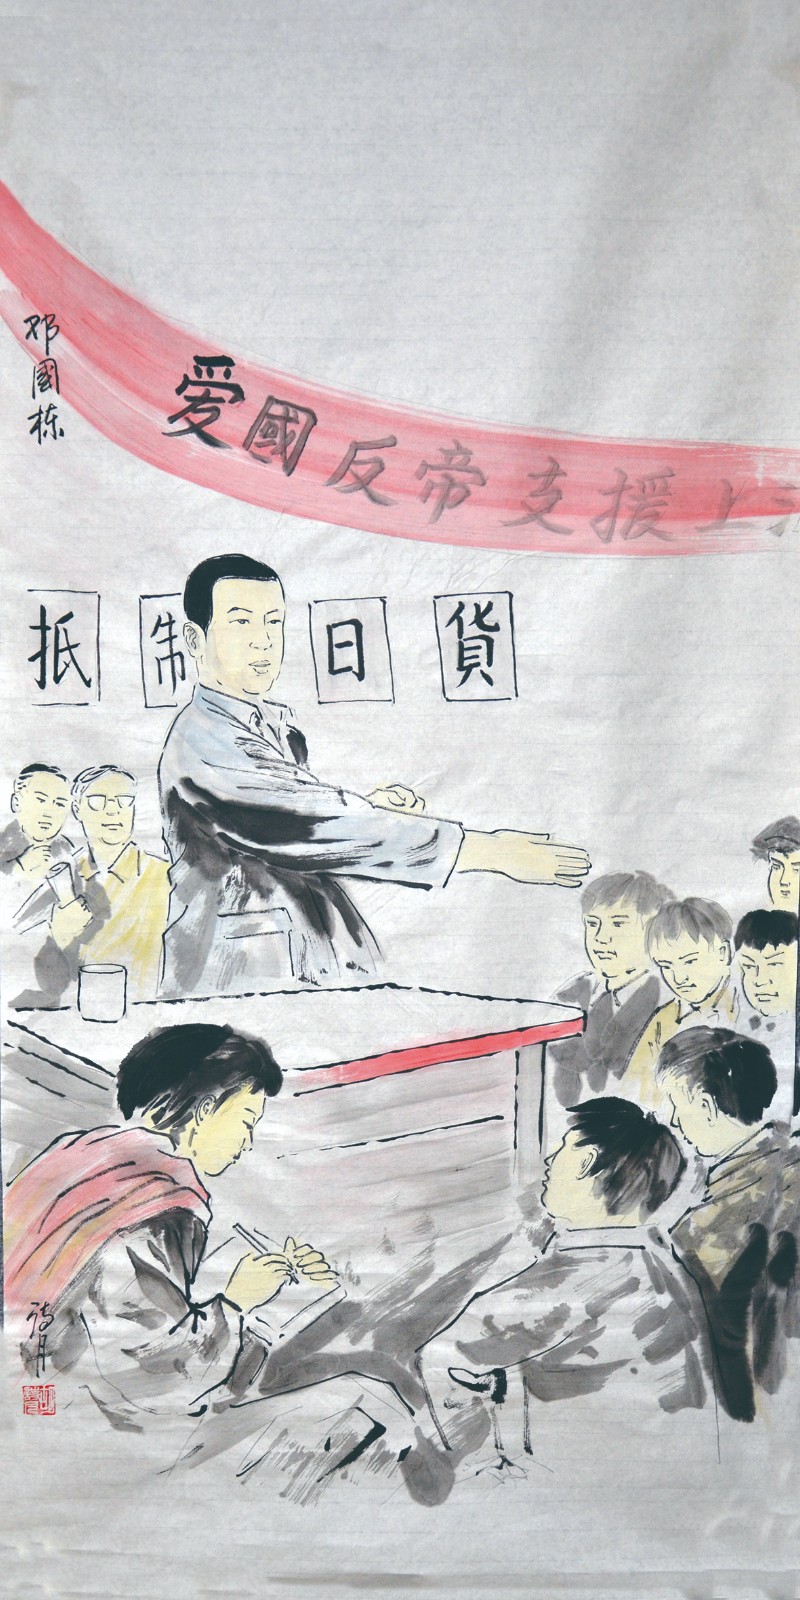 邓國栋
爱國反帝支援上
抵制日貨
诗月